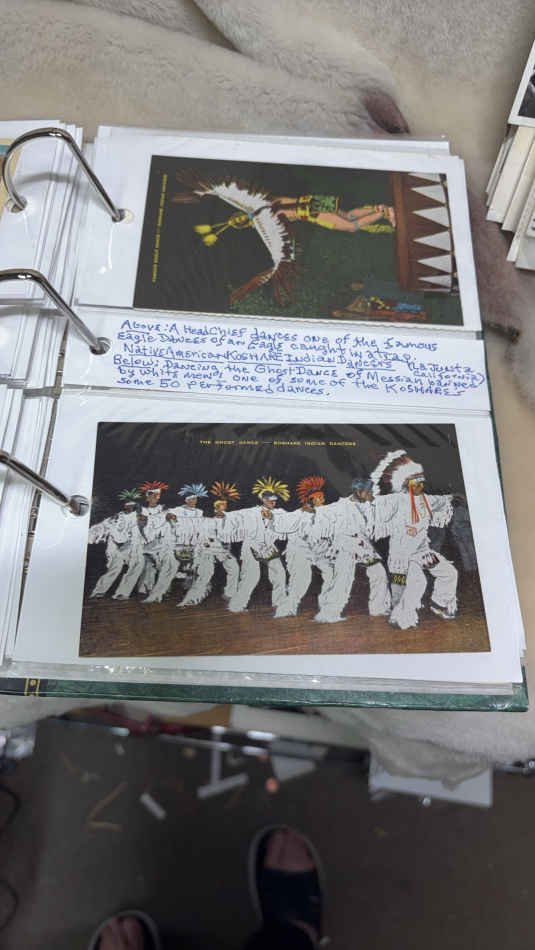 FAMOUS EAGLE DANCE — KOSHARE INDIAN DANCERS
Above: A Head Chief dances one of the famous
Eagle Dances of an Eagle caught in a trap.
Native American KOSHARE Indian Dancers Junta
California)
Below: Dancing the Ghost Dance of Messiah banned
by white men one of some of the KOSHARE's
some 50 performed dances.
THE GHOST DANCE — KOSHARE INDIAN DANCERS